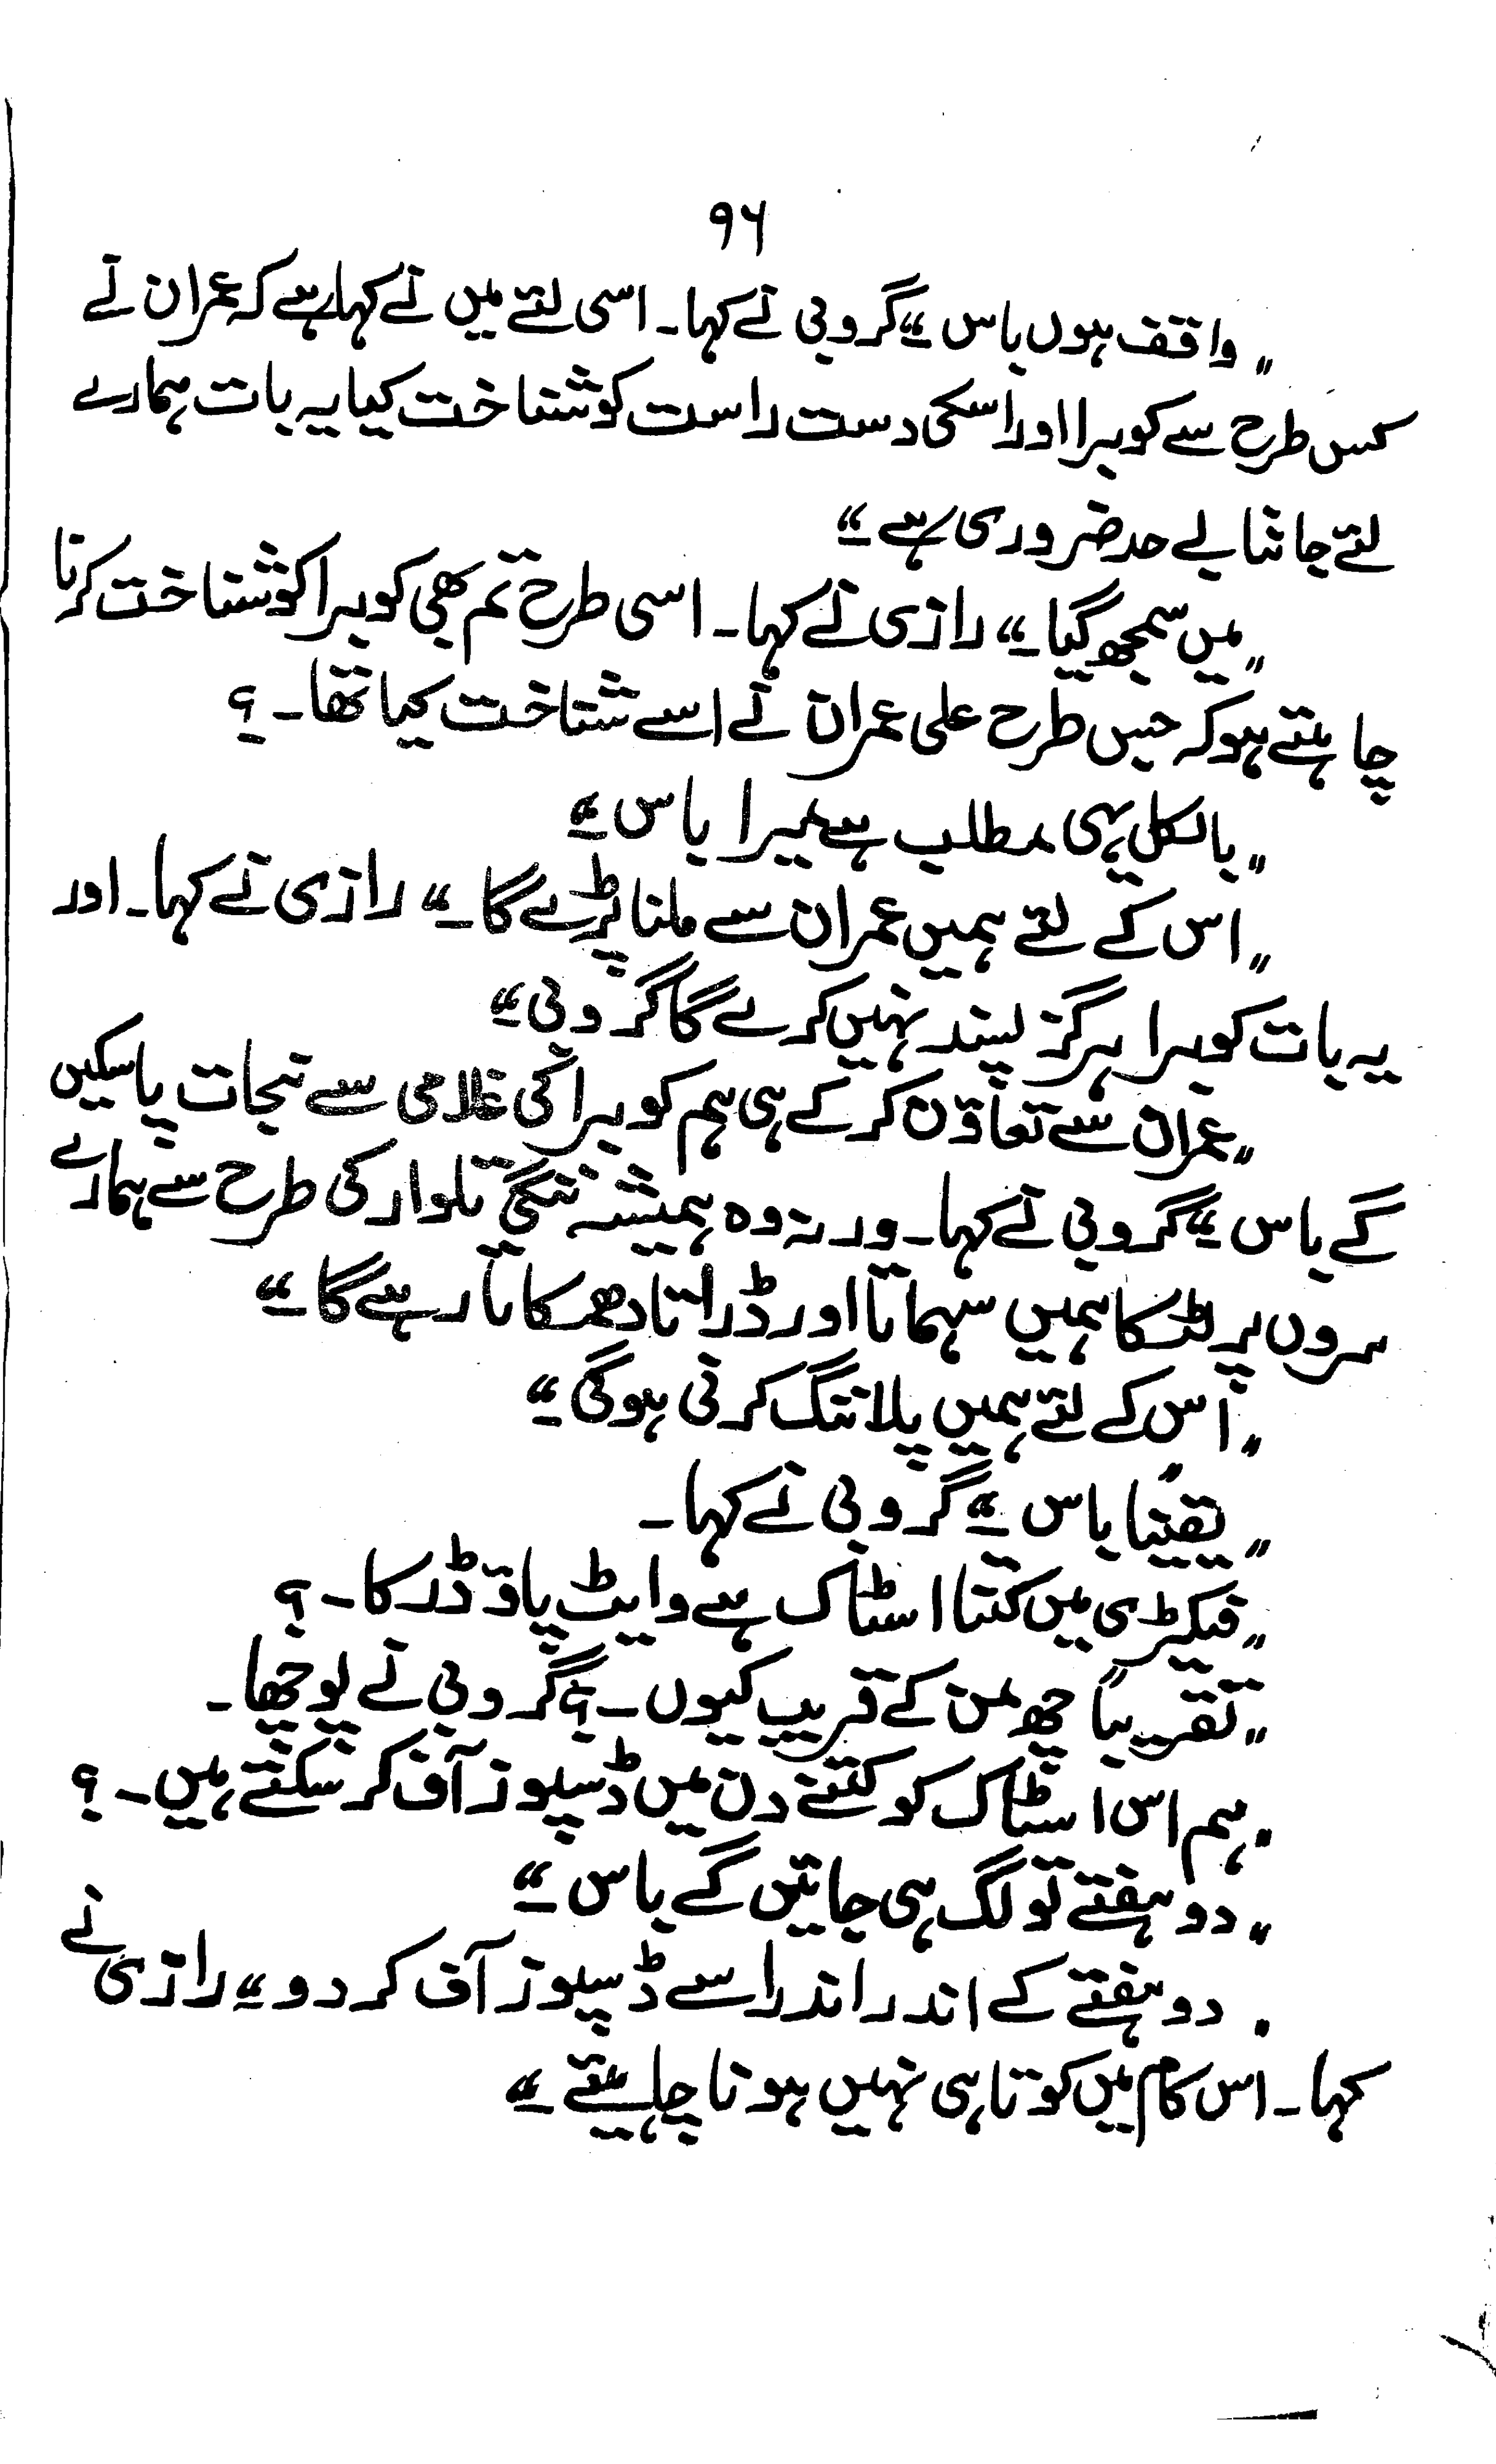 ۹۶
"واقف ہوں باس" گروبی نے کہا۔ اسی لئے میں نے کہا ہے کہ عمران نے
کس طرح سے کوبرا اور اسکی دست راست کو شناخت کیا یہ بات ہمارے
لئے جاننا بے حد ضروری ہے"
"میں سمجھ گیا" رازی نے کہا۔ اسی طرح تم بھی کوبرا کو شناخت کرنا
چاہتے ہو کہ جس طرح علی عمران نے اسے شناخت کیا تھا۔؟
"بالکل یہی مطلب ہے میرا باس"
"اس کے لئے ہمیں عمران سے ملنا پڑے گا۔" رازی نے کہا۔ اور
یہ بات کوبرا ہرگز پسند نہیں کرے گا گروبی"
"عمران سے تعاون کر کے ہی ہم کوبرا کی غلامی سے نجات پا سکیں
گے باس" گروبی نے کہا۔ ورنہ وہ ہمیشہ ننگی تلوار کی طرح سے ہمارے
سروں پر لٹکا ہمیں سہماتا اور ڈراتا دھمکاتا رہے گا"
"اس کے لئے ہمیں پلاننگ کرنی ہو گی"
"یقیناً باس" گروبی نے کہا۔
"فیکٹری میں کتنا اسٹاک ہے وایٹ پاؤڈر کا۔؟
"تقریباً چھ من کے قریب کیوں۔؟" گروبی نے پوچھا۔
"ہم اس اسٹاک کو کتنے دن میں ڈسپوز آف کر سکتے ہیں۔؟
"دو ہفتے تو لگ ہی جائیں گے باس"
"دو ہفتے کے اندر اندر اسے ڈسپوز آف کر دو" رازی نے
کہا۔ اس کام میں کوتاہی نہیں ہونا چاہیئے"